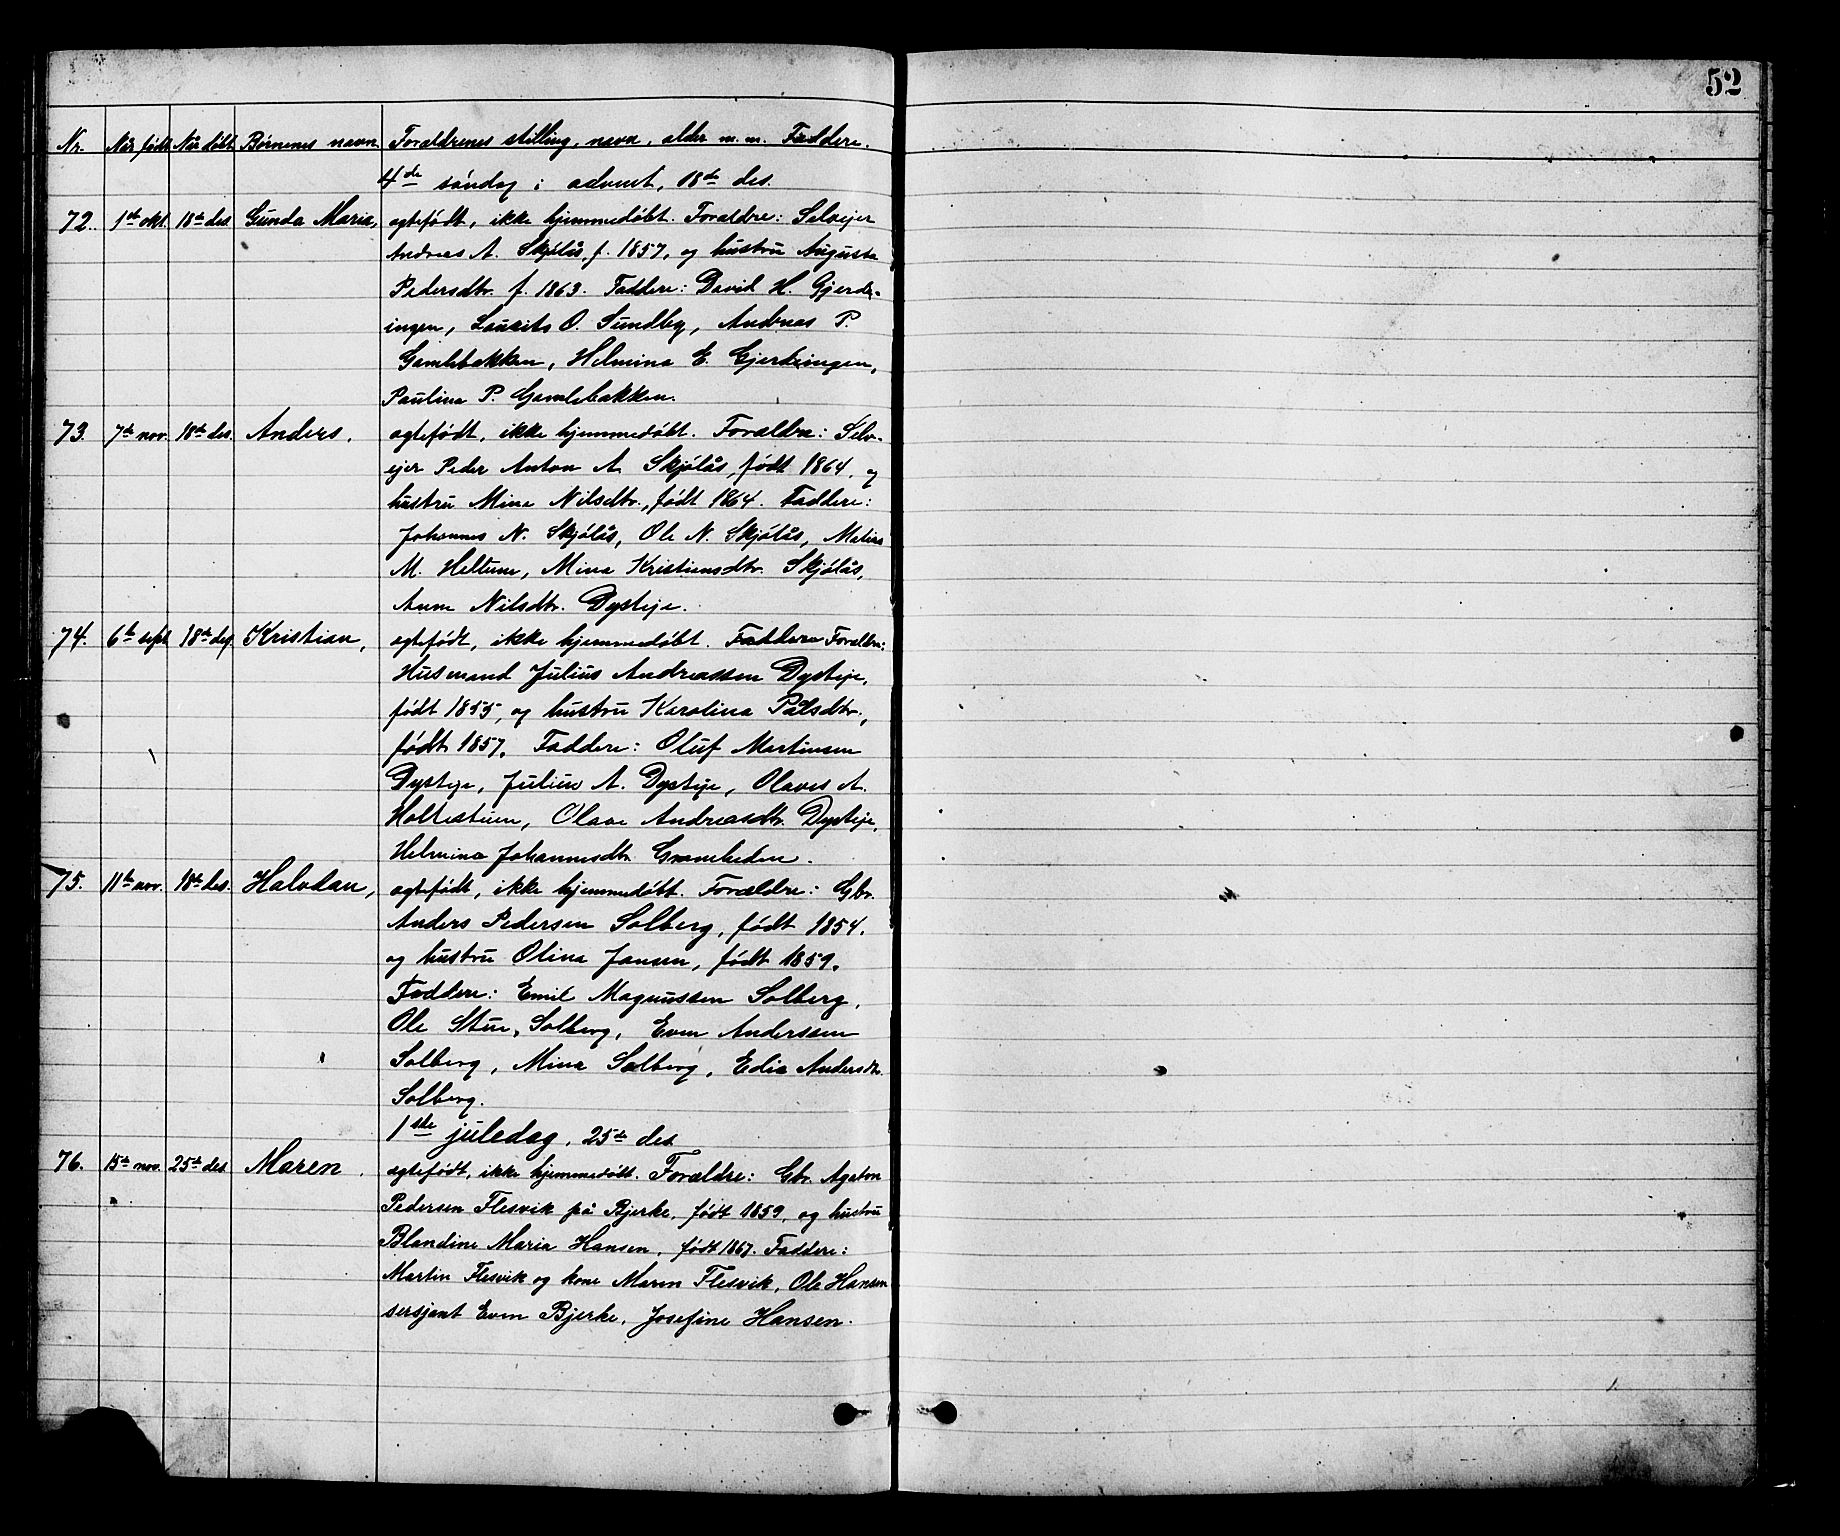 52
Nr. Når født Når døbt Børnenes navn. Forældrenes stilling, navn, alder m. m. Faddere.
4de søndag i advent, 18de des.
72. 1ste okt. 18de des. Gunda Maria, ægtefødt, ikke hjemmedøbt. Forældre: Selvejer
Andreas A. Skjølås, f. 1857, og hustru Auguste
Pedersdtr. f. 1863. Faddere: David H. Gjerdr-
ingen, Laurits O. Sundby, Andreas P.
Gamlebakken, Helmina E. Gjerdringen,
Paulina P. Gamlebakken.
73. 7de nov. 18de des. Anders, ægtefødt, ikke hjemmedøbt. Forældre: Selv-
ejer Peder Anton A. Skjølås, født 1864, og
hustru Mina Nilsdtr., født 1864. Faddere:
Johannes N. Skjølås, Ole N. Skjølås,
M. Heltune, Mina Kristiansdtr. Skjølås,
Anne Nilsdtr. Dysteje.
74. 6te sept. 18de des. Kristian, ægtefødt, ikke hjemmedøbt. Faddere Forældre:
Husmand Julius Andreassen Dysteje,
født 1855, og hustru Karolina Pålsdtr.,
født 1857. Faddere: Oluf Martinsen
Dysteje, Julius A. Dysteje, Olaves A.
Holtestuen, Olave Andreasdtr. Dysteje,
Helmina Johannesdtr. Gramheden.
75. 11te nov. 18de des. Halvdan, ægtefødt, ikke hjemmedøbt. Forældre: Gbr.
Anders Pedersen Solberg, født 1854,
og hustru Olina Jansen, født 1859.
Faddere: Emil Magnussen Solberg,
Ole Stue, Solberg, Even Anderssen
Solberg, Mina Solberg, Edia Andersdtr.
Solberg.
1ste juledag, 25de des.
76. 15de nov. 25de des. Maren, ægtefødt, ikke hjemmedøbt. Forældre: Gbr. Agaton
Pedersen Flesvik på Bjerke, født 1859, og hustru
Blandine Maria Hansen, født 1867. Faddere:
Martin Flesvik og kone Maren Flesvik, Ole Hansen
sersjant Even Bjerke, Josefine Hansen.